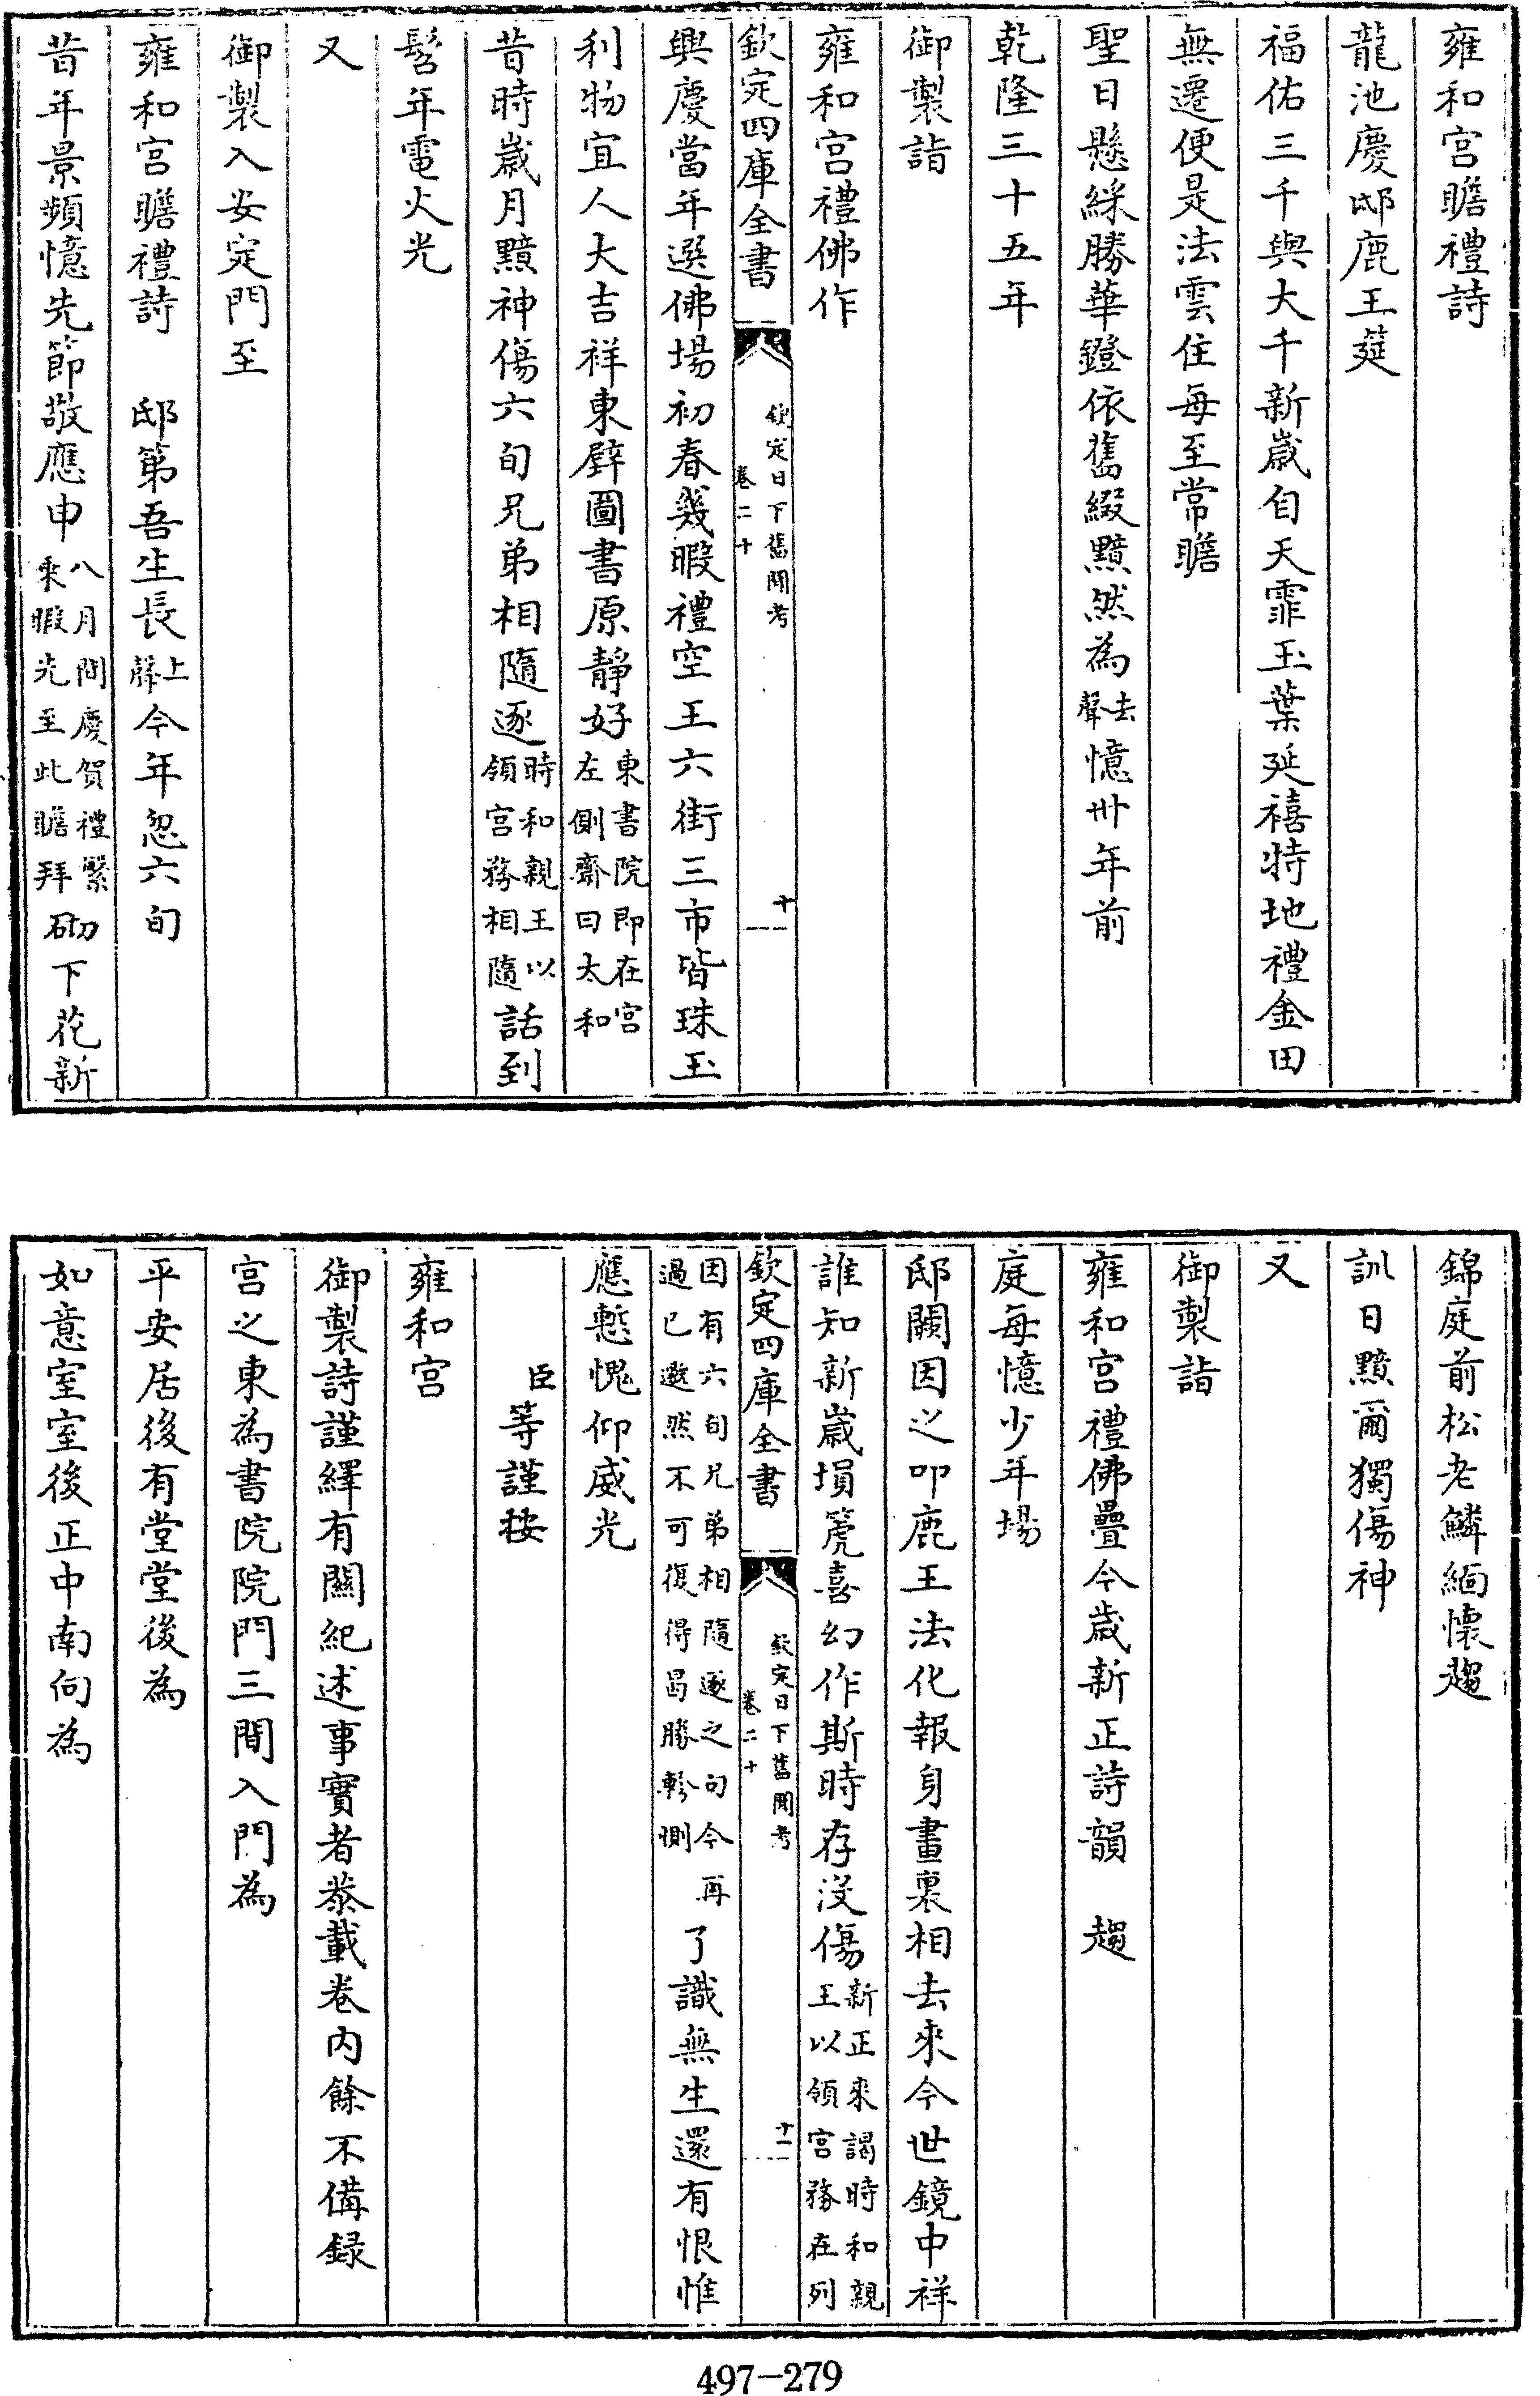 雍和宫瞻禮詩
龍池慶邸鹿王筵
福佑三千與大千新歲自天霏玉葉延禧特地禮金田
無遷便是法雲住每至常瞻
聖日懸綵勝華鐙依舊綴黯然為去聲憶卅年前
乾隆三十五年
御製詣
雍和宫禮佛作
欽定四庫全書
欽定日下舊聞考
卷二十
十
興慶當年選佛場初春幾暇禮空王六街三市皆珠玉
利物宜人大吉祥東壁圖書原靜好東書院即在宫左側齋曰太和
昔時歲月黯神傷六旬兄弟相隨逐時和親王以領宫務相隨話到
髫年電火光
又
御製入安定門至
雍和宫瞻禮詩 邸第吾生長上聲今年忽六旬
昔年景頻憶先節敬應申八月間慶賀禮繁乘暇先至此瞻拜砌下花新
錦庭前松老鱗緬懷趨
訓日黯爾獨傷神
又
御製詣
雍和宫禮佛疊今歲新正詩韻 趨
庭每憶少年場
邸闕因之叩鹿王法化報身畫裏相去來今世鏡中祥
誰知新歲塤篪喜幻作斯時存沒傷新正來謁時和親王以領宫務在列
欽定四庫全書
欽定日下舊聞考
卷二十
十一
因有六旬兄弟相隨逐之句今再過已邈然不可復得曷勝軫惻了識無生還有恨惟
應慙愧仰威光
臣等謹按
雍和宫
御製詩謹繹有關紀述事實者恭載卷内餘不備録
宫之東為書院院門三間入門為
平安居後有堂堂後為
如意室室後正中南向為
497-279